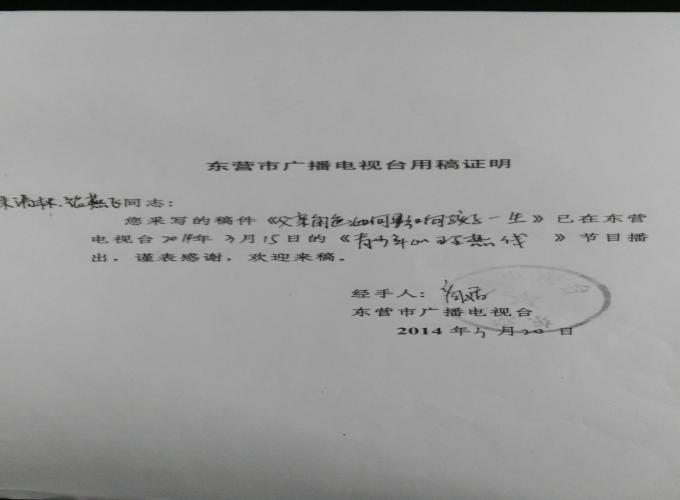 东营市广播电视台用稿证明
同志:
您采写的稿件《父亲角色如何影响孩子一生》已在东营
电视台2014年3月15日的《青少年心理热线》节目播
出,谨表感谢,欢迎来稿。
经手人:
东营市广播电视台
2014年3月20日